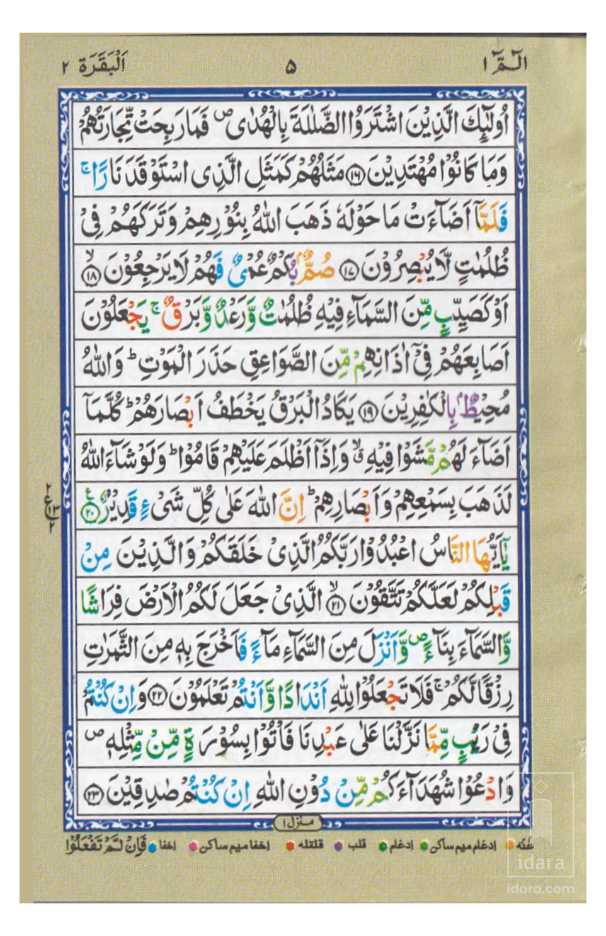 الٓمّٓ ١ ۵ اَلْبَقَرَة ٢
اُولٰٓئِكَ الَّذِیْنَ اشْتَرَوُا الضَّلٰلَةَ بِالْهُدٰی ۪ فَمَا رَبِحَتْ تِّجَارَتُهُمْ
وَمَا كَانُوْا مُهْتَدِیْنَ ﴿۱۶﴾ مَثَلُهُمْ كَمَثَلِ الَّذِی اسْتَوْقَدَ نَارًا ۚ
فَلَمَّاۤ اَضَآءَتْ مَا حَوْلَهٗ ذَهَبَ اللّٰهُ بِنُوْرِهِمْ وَتَرَكَهُمْ فِیْ
ظُلُمٰتٍ لَّا یُبْصِرُوْنَ ﴿۱۷﴾ صُمٌّۢ بُكْمٌ عُمْیٌ فَهُمْ لَا یَرْجِعُوْنَ ﴿۱۸﴾ۙ
اَوْ كَصَیِّبٍ مِّنَ السَّمَآءِ فِیْهِ ظُلُمٰتٌ وَّرَعْدٌ وَّبَرْقٌ ۚ یَجْعَلُوْنَ
اَصَابِعَهُمْ فِیْۤ اٰذَانِهِمْ مِّنَ الصَّوَاعِقِ حَذَرَ الْمَوْتِ ؕ وَاللّٰهُ
مُحِیْطٌۢ بِالْكٰفِرِیْنَ ﴿۱۹﴾ یَكَادُ الْبَرْقُ یَخْطَفُ اَبْصَارَهُمْ ؕ كُلَّمَاۤ
اَضَآءَ لَهُمْ مَّشَوْا فِیْهِ ۙ وَاِذَاۤ اَظْلَمَ عَلَیْهِمْ قَامُوْا ؕ وَلَوْ شَآءَ اللّٰهُ
لَذَهَبَ بِسَمْعِهِمْ وَاَبْصَارِهِمْ ؕ اِنَّ اللّٰهَ عَلٰی كُلِّ شَیْءٍ قَدِیْرٌ ﴿۲۰﴾
یٰۤاَیُّهَا النَّاسُ اعْبُدُوْا رَبَّكُمُ الَّذِیْ خَلَقَكُمْ وَالَّذِیْنَ مِنْ
قَبْلِكُمْ لَعَلَّكُمْ تَتَّقُوْنَ ﴿۲۱﴾ۙ الَّذِیْ جَعَلَ لَكُمُ الْاَرْضَ فِرَاشًا
وَّالسَّمَآءَ بِنَآءً ۪ وَّاَنْزَلَ مِنَ السَّمَآءِ مَآءً فَاَخْرَجَ بِهٖ مِنَ الثَّمَرٰتِ
رِزْقًا لَّكُمْ ۚ فَلَا تَجْعَلُوْا لِلّٰهِ اَنْدَادًا وَّاَنْتُمْ تَعْلَمُوْنَ ﴿۲۲﴾ وَاِنْ كُنْتُمْ
فِیْ رَیْبٍ مِّمَّا نَزَّلْنَا عَلٰی عَبْدِنَا فَاْتُوْا بِسُوْرَةٍ مِّنْ مِّثْلِهٖ ۪
وَادْعُوْا شُهَدَآءَكُمْ مِّنْ دُوْنِ اللّٰهِ اِنْ كُنْتُمْ صٰدِقِیْنَ ﴿۲۳﴾
منزل ۱
غنّه ادغام میم ساكن ادغام قلب قلقله اخفا میم ساكن اخفا فَاِنْ لَّمْ تَفْعَلُوْا
idara
idara.com